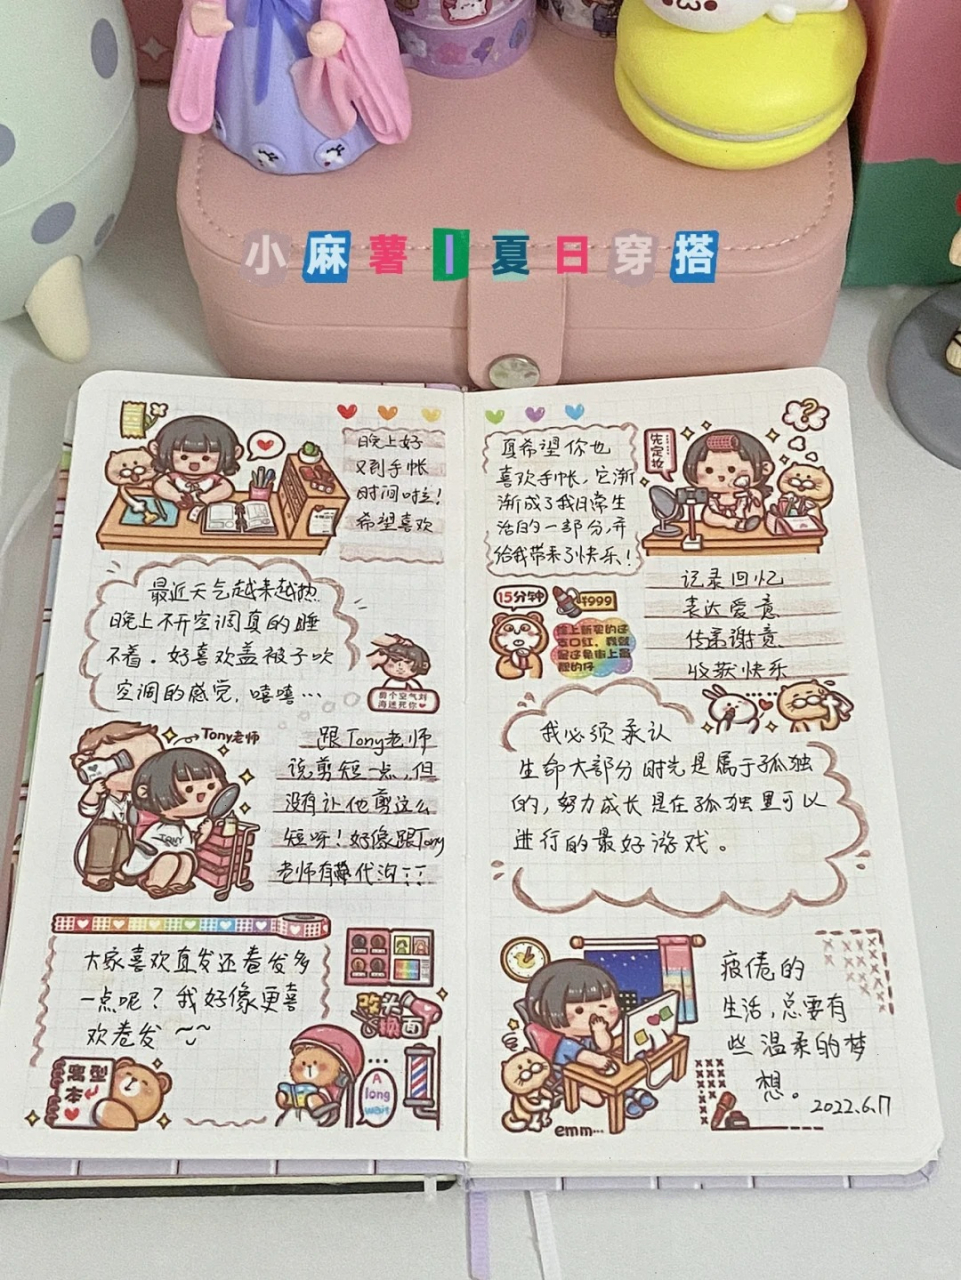 小麻薯|夏日穿搭
晚上好
又到手帐
时间啦！
希望喜欢
最近天气越来越热
晚上不开空调真的睡
不着。好喜欢盖被子吹
空调的感觉，嘻嘻…
剪个空气刘
海迷死你
Tony老师
跟Tony老师
说剪短一点，但
没有让他剪这么
短呀！好像跟Tony
老师有代沟
大家喜欢直发还卷发多
一点呢？我好像更喜
欢卷发～~
改头
换面
离型
本
A
long
wait
真希望你也
喜欢手帐，它渐
渐成了我日常生
活的一部分，并
给我带来了快乐！
先定妆
?
15分钟
¥999
涂上新买的这
支口红，我就
是这条街上最
靓的仔
记录回忆
表达爱意
传递谢意
收获快乐
我必须承认
生命大部分时光是属于孤独
的，努力成长是在孤独里可以
进行的最好游戏。
疲倦的
生活，总要有
些温柔的梦
想。
2022.6.17
emm...